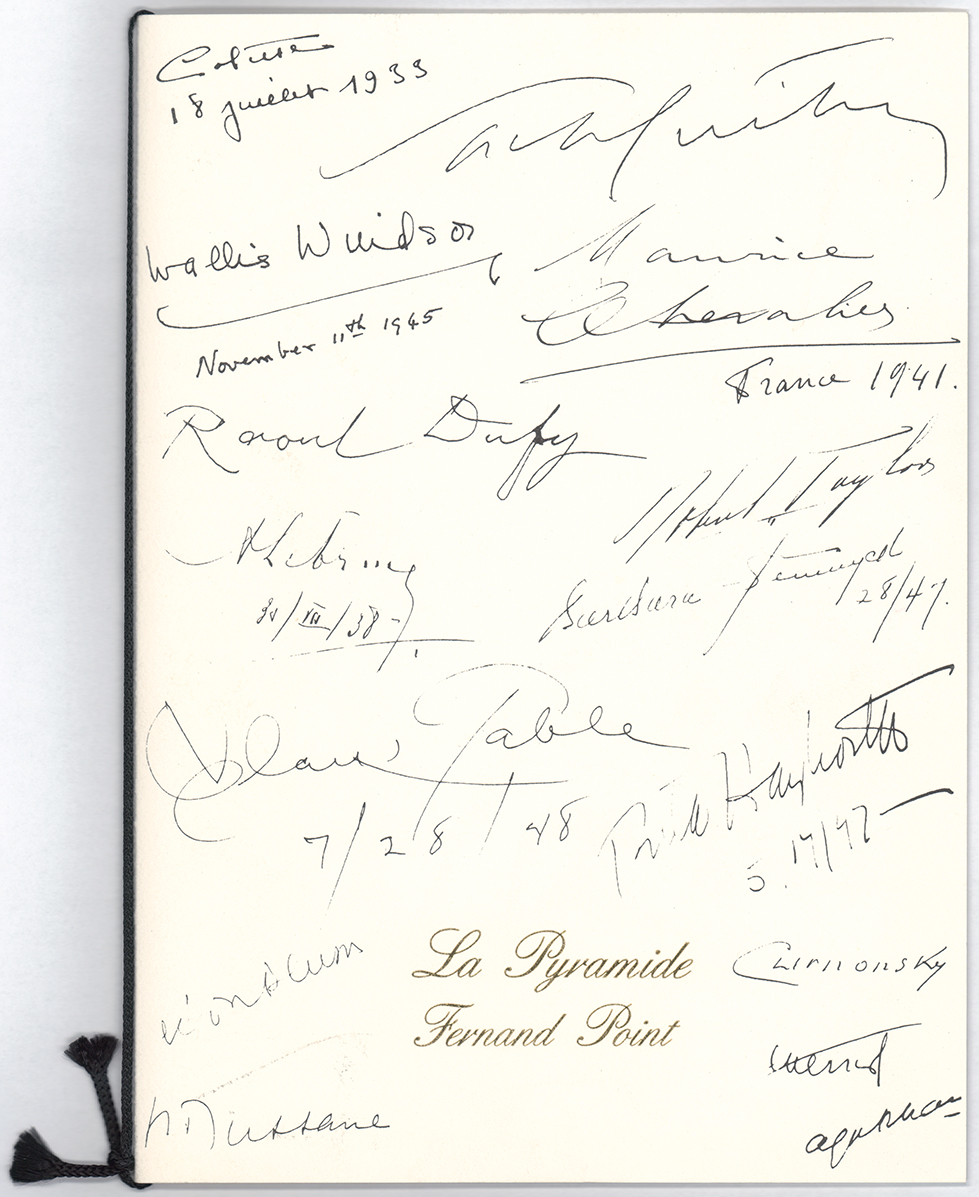 Colette
18 juillet 1933
Sacha Guitry
Wallis Windsor
November 11th 1945
Maurice
Chevalier
France 1941.
Raoul Dufy
Robert Taylor
Barbara Stanwyck
28/47.
ALebrun
31/VII/38
Clark Gable
7/28/48
Rita Hayworth
5.17/47
Léon Blum
La Pyramide
Fernand Point
Curnonsky
Mistinguett